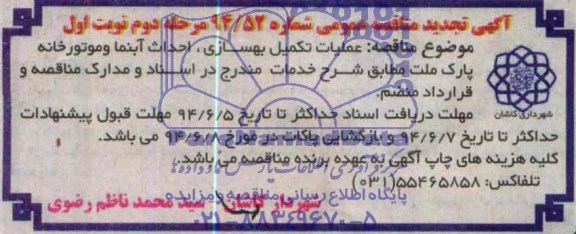 آگهی تجدید مناقصه عمومی شماره ۹۴/۵۲ مرحله دوم نوبت اول
موضوع مناقصه: عملیات تکمیل بهسازی، احداث آبنما وموتورخانه
پارک ملت مطابق شرح خدمات مندرج در اسناد و مدارک مناقصه و
قرارداد منضم.
مهلت دریافت اسناد حداکثر تا تاریخ ۹۴/۶/۵ مهلت قبول پیشنهادات
حداکثر تا تاریخ ۹۴/۶/۷ و بازگشایی پاکات در مورخ ۹۴/۶/۸ می باشد.
کلیه هزینه های چاپ آگهی به عهده برنده مناقصه می باشد.
تلفاکس: ۵۵۴۶۵۸۵۸(۰۳۱)
شهردار کاشان - سید محمد ناظم رضوی
شهرداری کاشان
پایگاه اطلاع رسانی مناقصه و مزایده
۰۲۱-۸۸۳۴۹۶۷۰-۵